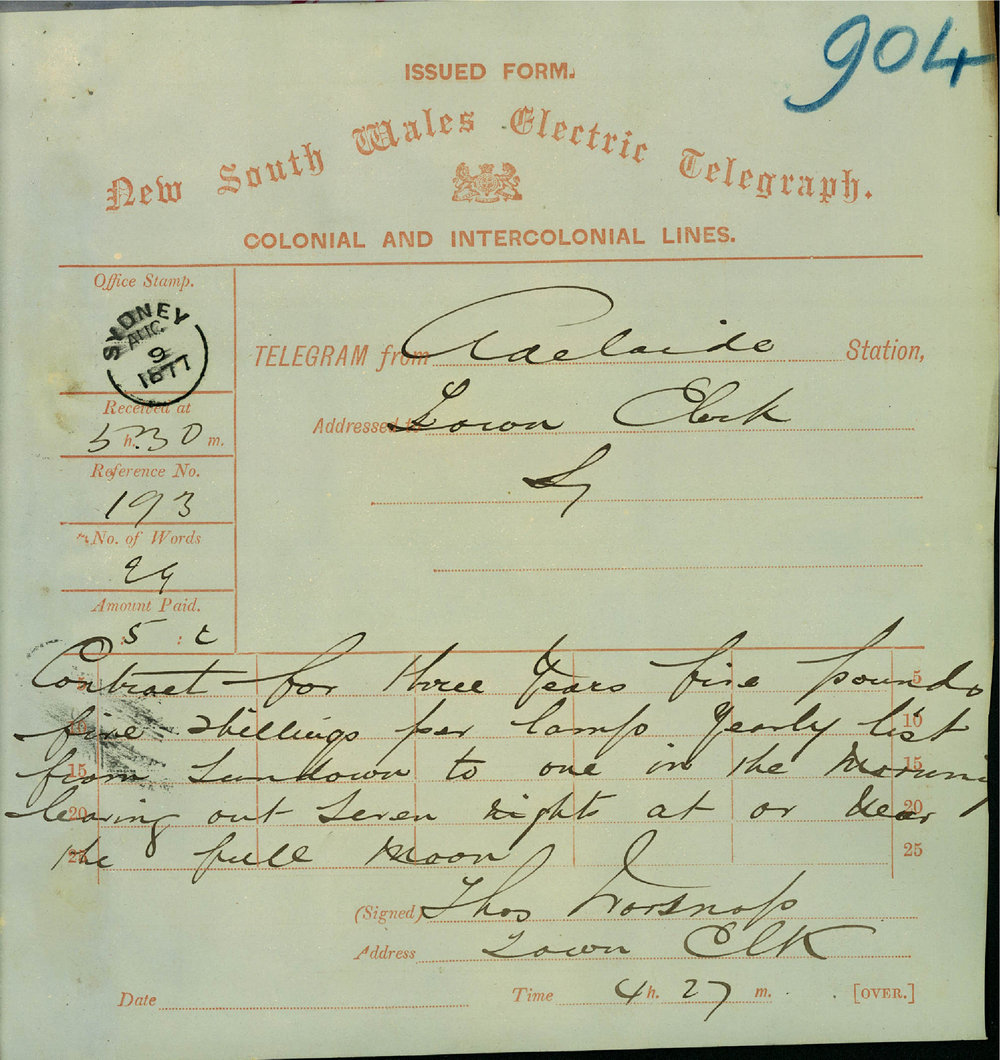 904
ISSUED FORM.
New South Wales Electric Telegraph.
COLONIAL AND INTERCOLONIAL LINES.
Office Stamp.
SYDNEY
AUG
9
1877
Received at
5 h. 30 m.
Reference No.
193
No. of Words
29
Amount Paid.
5 :
TELEGRAM from Adelaide Station,
Addressed to Town Clerk
Sy
5 Contract for three Years five pounds 5
10 five shillings per lamp Yearly list 10
15 from Sundown to one in the Morning 15
20 leaving out Seven Nights at or Near 20
25 the full Moon 25
(Signed) Thos Worsnop
Address Town Clk
Date Time 4 h. 27 m. [OVER.]